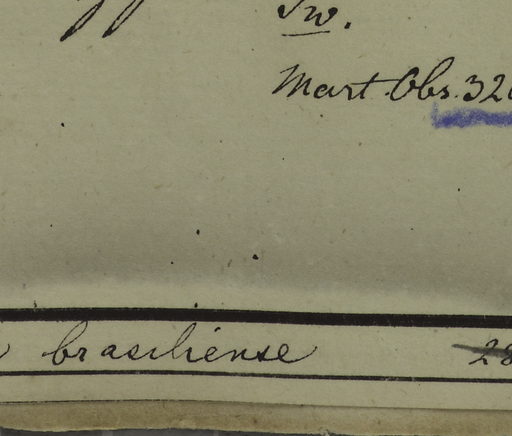 Sw.
Mart. Obs. 32
brasiliense 28